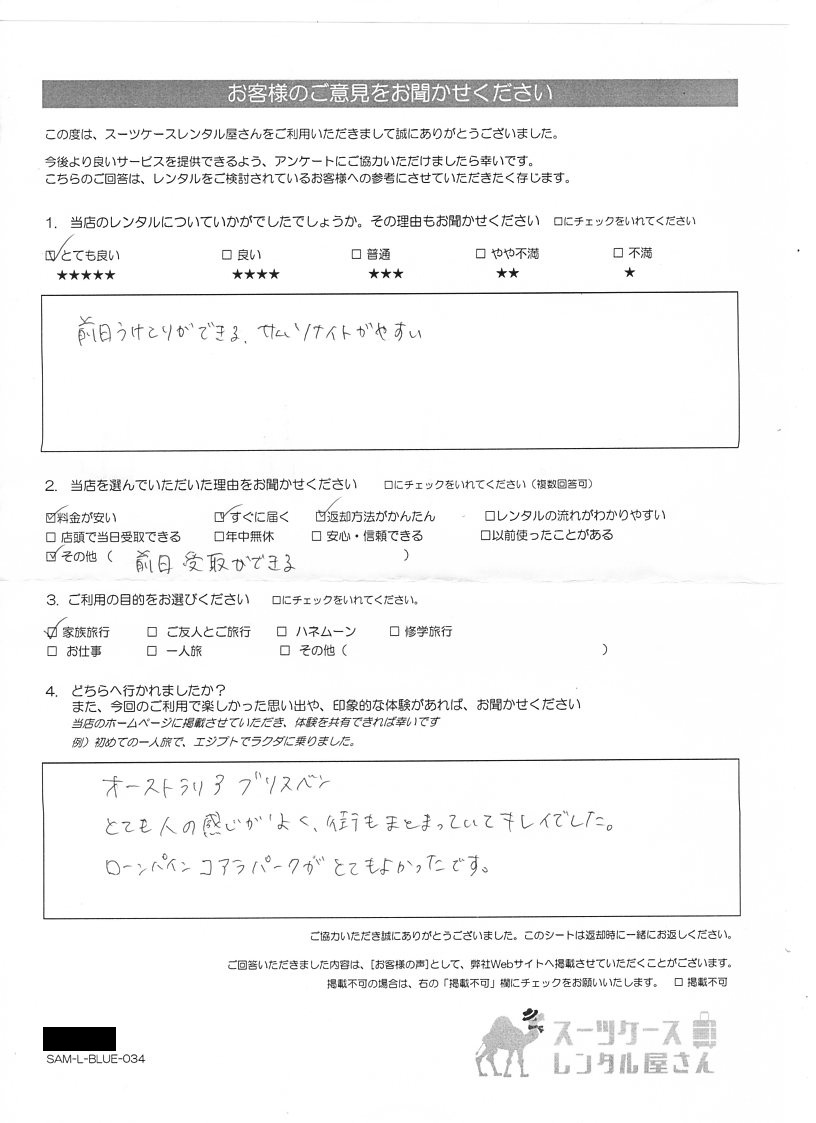 お客様のご意見をお聞かせください
この度は、スーツケースレンタル屋さんをご利用いただきまして誠にありがとうございました。
今後より良いサービスを提供できるよう、アンケートにご協力いただけましたら幸いです。
こちらのご回答は、レンタルをご検討されているお客様への参考にさせていただきたく存じます。
1. 当店のレンタルについていかがでしたでしょうか。その理由もお聞かせください □にチェックをいれてください
☑とても良い □ 良い □ 普通 □ やや不満 □ 不満
★★★★★ ★★★★ ★★★ ★★ ★
前日うけとりができる、サムソナイトがやすい
2. 当店を選んでいただいた理由をお聞かせください □にチェックをいれてください（複数回答可）
☑料金が安い ☑すぐに届く ☑返却方法がかんたん □レンタルの流れがわかりやすい
□ 店頭で当日受取できる □年中無休 □ 安心・信頼できる □以前使ったことがある
☑その他（ 前日 受取ができる ）
3. ご利用の目的をお選びください □にチェックをいれてください。
☑家族旅行 □ ご友人とご旅行 □ ハネムーン □ 修学旅行
□ お仕事 □ 一人旅 □ その他（ ）
4. どちらへ行かれましたか？
また、今回のご利用で楽しかった思い出や、印象的な体験があれば、お聞かせください
当店のホームページに掲載させていただき、体験を共有できれば幸いです
例）初めての一人旅で、エジプトでラクダに乗りました。
オーストラリア ブリスベン
とても人の感じがよく、街もまとまっていてキレイでした。
ローンパイン コアラパークがとてもよかったです。
ご協力いただき誠にありがとうございました。このシートは返却時に一緒にお返しください。
ご回答いただきました内容は、[お客様の声]として、弊社Webサイトへ掲載させていただくことがございます。
掲載不可の場合は、右の「掲載不可」欄にチェックをお願いいたします。 □ 掲載不可
SAM-L-BLUE-034
スーツケース
レンタル屋さん